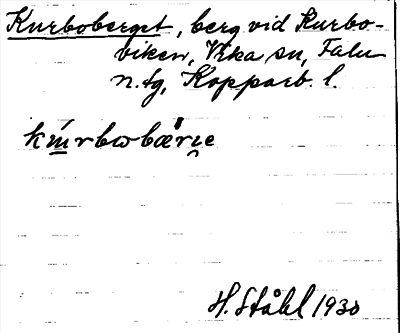 Kurboberget, berg vid Kurbo-
viken, Vika sn, Falu
n. tg, Kopparb. l.
kúrbωbærge
H. Ståhl 1930